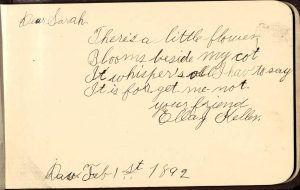 Dear Sarah.
There's a little flower
Blooms beside my cot
It whisper's all I hav to say
It is forget me not
your friend
Ellay Keller
Feb 1st 1892